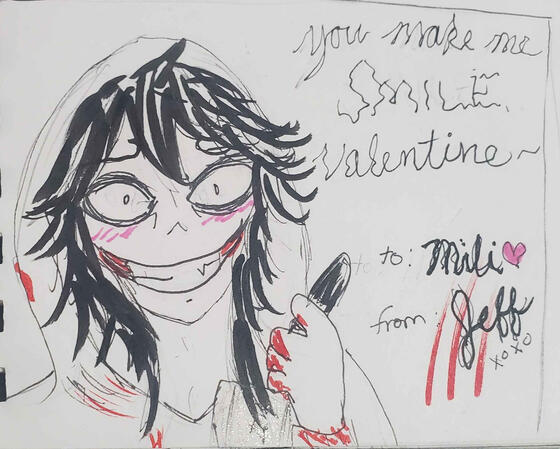 you make me
SMILE
Valentine~
to: Mili
from: Jeff
xoxo